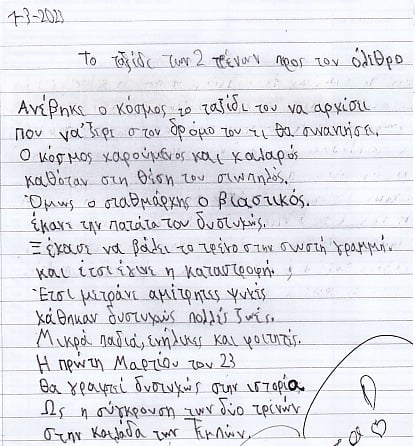 7-3-2023
Το ταξίδι των 2 τρένων προς τον όλεθρο
Ανέβηκε ο κόσμος το ταξίδι του να αρχίσει
που να΄ξερε στον δρόμο του τι θα συναντήσει.
Ο κόσμος χαρούμενος και χαλαρός
καθόταν στη θέση του σιωπηλός.
Όμως ο σταθμάρχης ο βιαστικός.
έκανε την πατάτα του δυστυχώς.
Ξέχασε να βάλει το τρένο στην σωστή γραμμή.
και έτσι έγινε η καταστροφή.
Έτσι μετράνε αμέτρητες ψυχές
χάθηκαν δυστυχώς πολλές ζωές.
Μικρά παδιά, ενήλικες και φοιτητές.
Η πρώτη Μαρτίου του 23
θα γραφτεί δυστυχώς στην ιστορία
Ως η σύγκρουση των δύο τρένων
στην κοιλάδα των Τεμπών